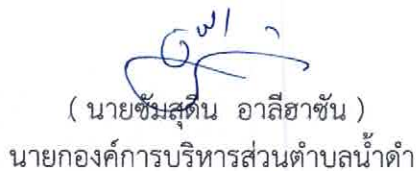 ( นายซัมสุดิน อาลีฮาซัน )
นายกองค์การบริหารส่วนตำบลน้ำดำ